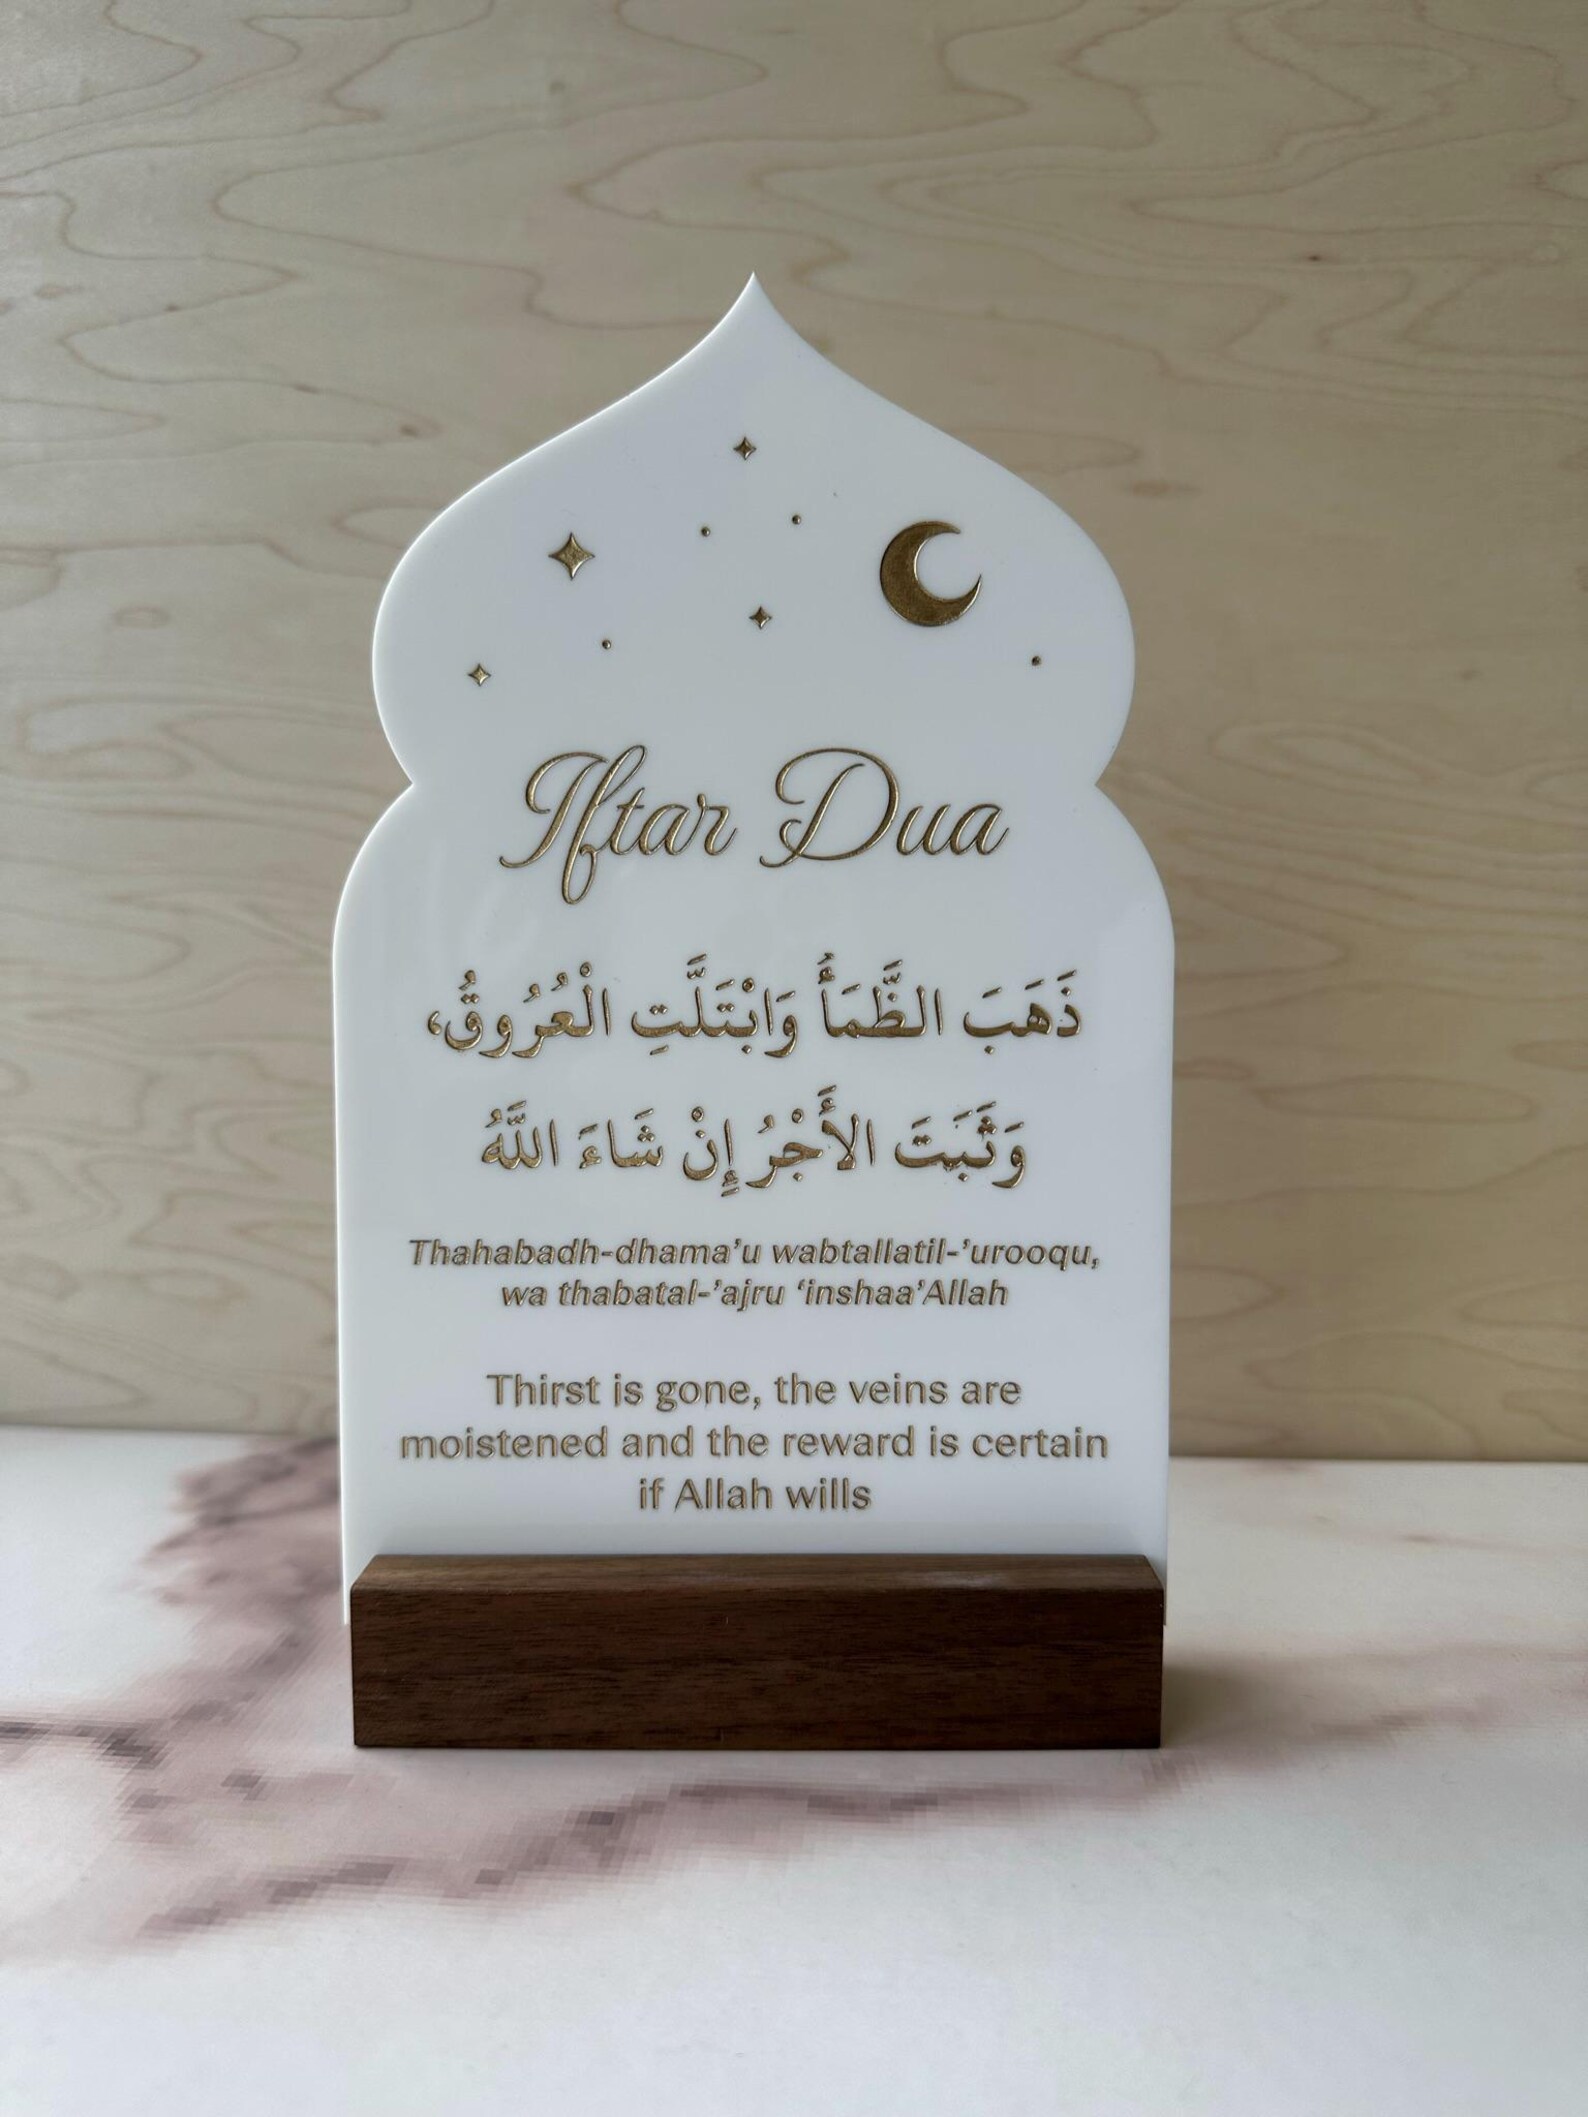 Iftar Dua
ذَهَبَ الظَّمَأُ وَابْتَلَّتِ الْعُرُوقُ،
وَثَبَتَ الأَجْرُ إِنْ شَاءَ اللَّهُ
Thahabadh-dhama’u wabtallatil-’urooqu,
wa thabatal-’ajru ‘inshaa’Allah
Thirst is gone, the veins are
moistened and the reward is certain
if Allah wills